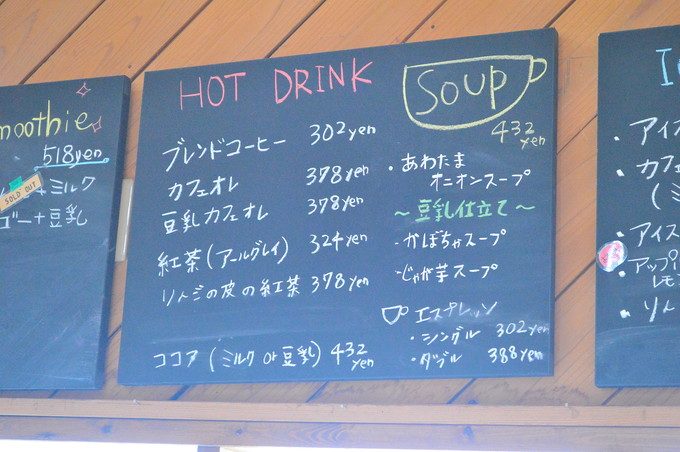 moothie
518yen
ミルク
SOLD OUT
ゴー+豆乳
HOT DRINK
ブレンドコーヒー 302yen
カフェオレ 378yen
豆乳カフェオレ 378yen
紅茶(アールグレイ) 324yen
りんごの皮の紅茶 378yen
ココア(ミルク or 豆乳) 432yen
Soup
432yen
・あわたま
オニオンスープ
〜豆乳仕立て〜
・かぼちゃスープ
・じゃが芋スープ
エスプレッソ
・シングル 302yen
・ダブル 388yen
I
・アイス
・カフェ
(ミ
・アイス
・アップ
レモ
・りん